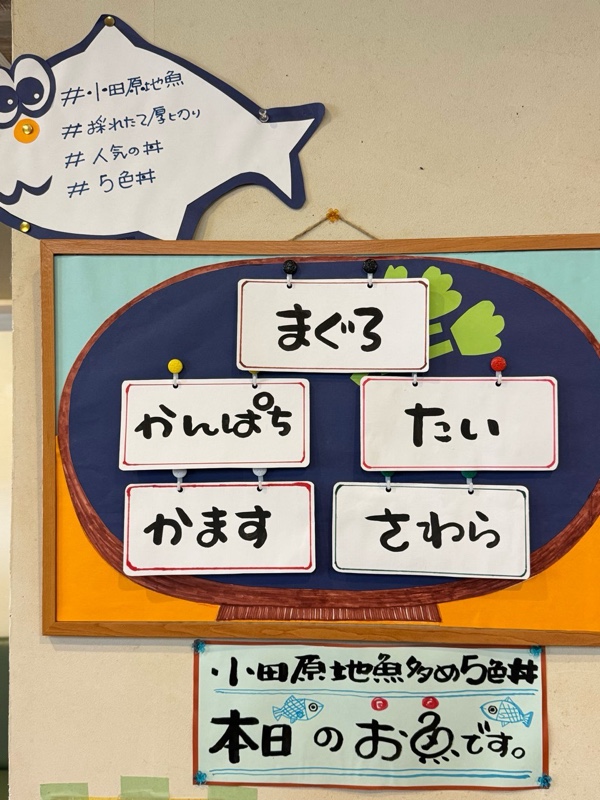 #小田原地魚
#採れたて厚切り
#人気の丼
#5色丼
まぐろ
かんぱち
たい
かます
さわら
小田原地魚多め5色丼
本日のお魚です。